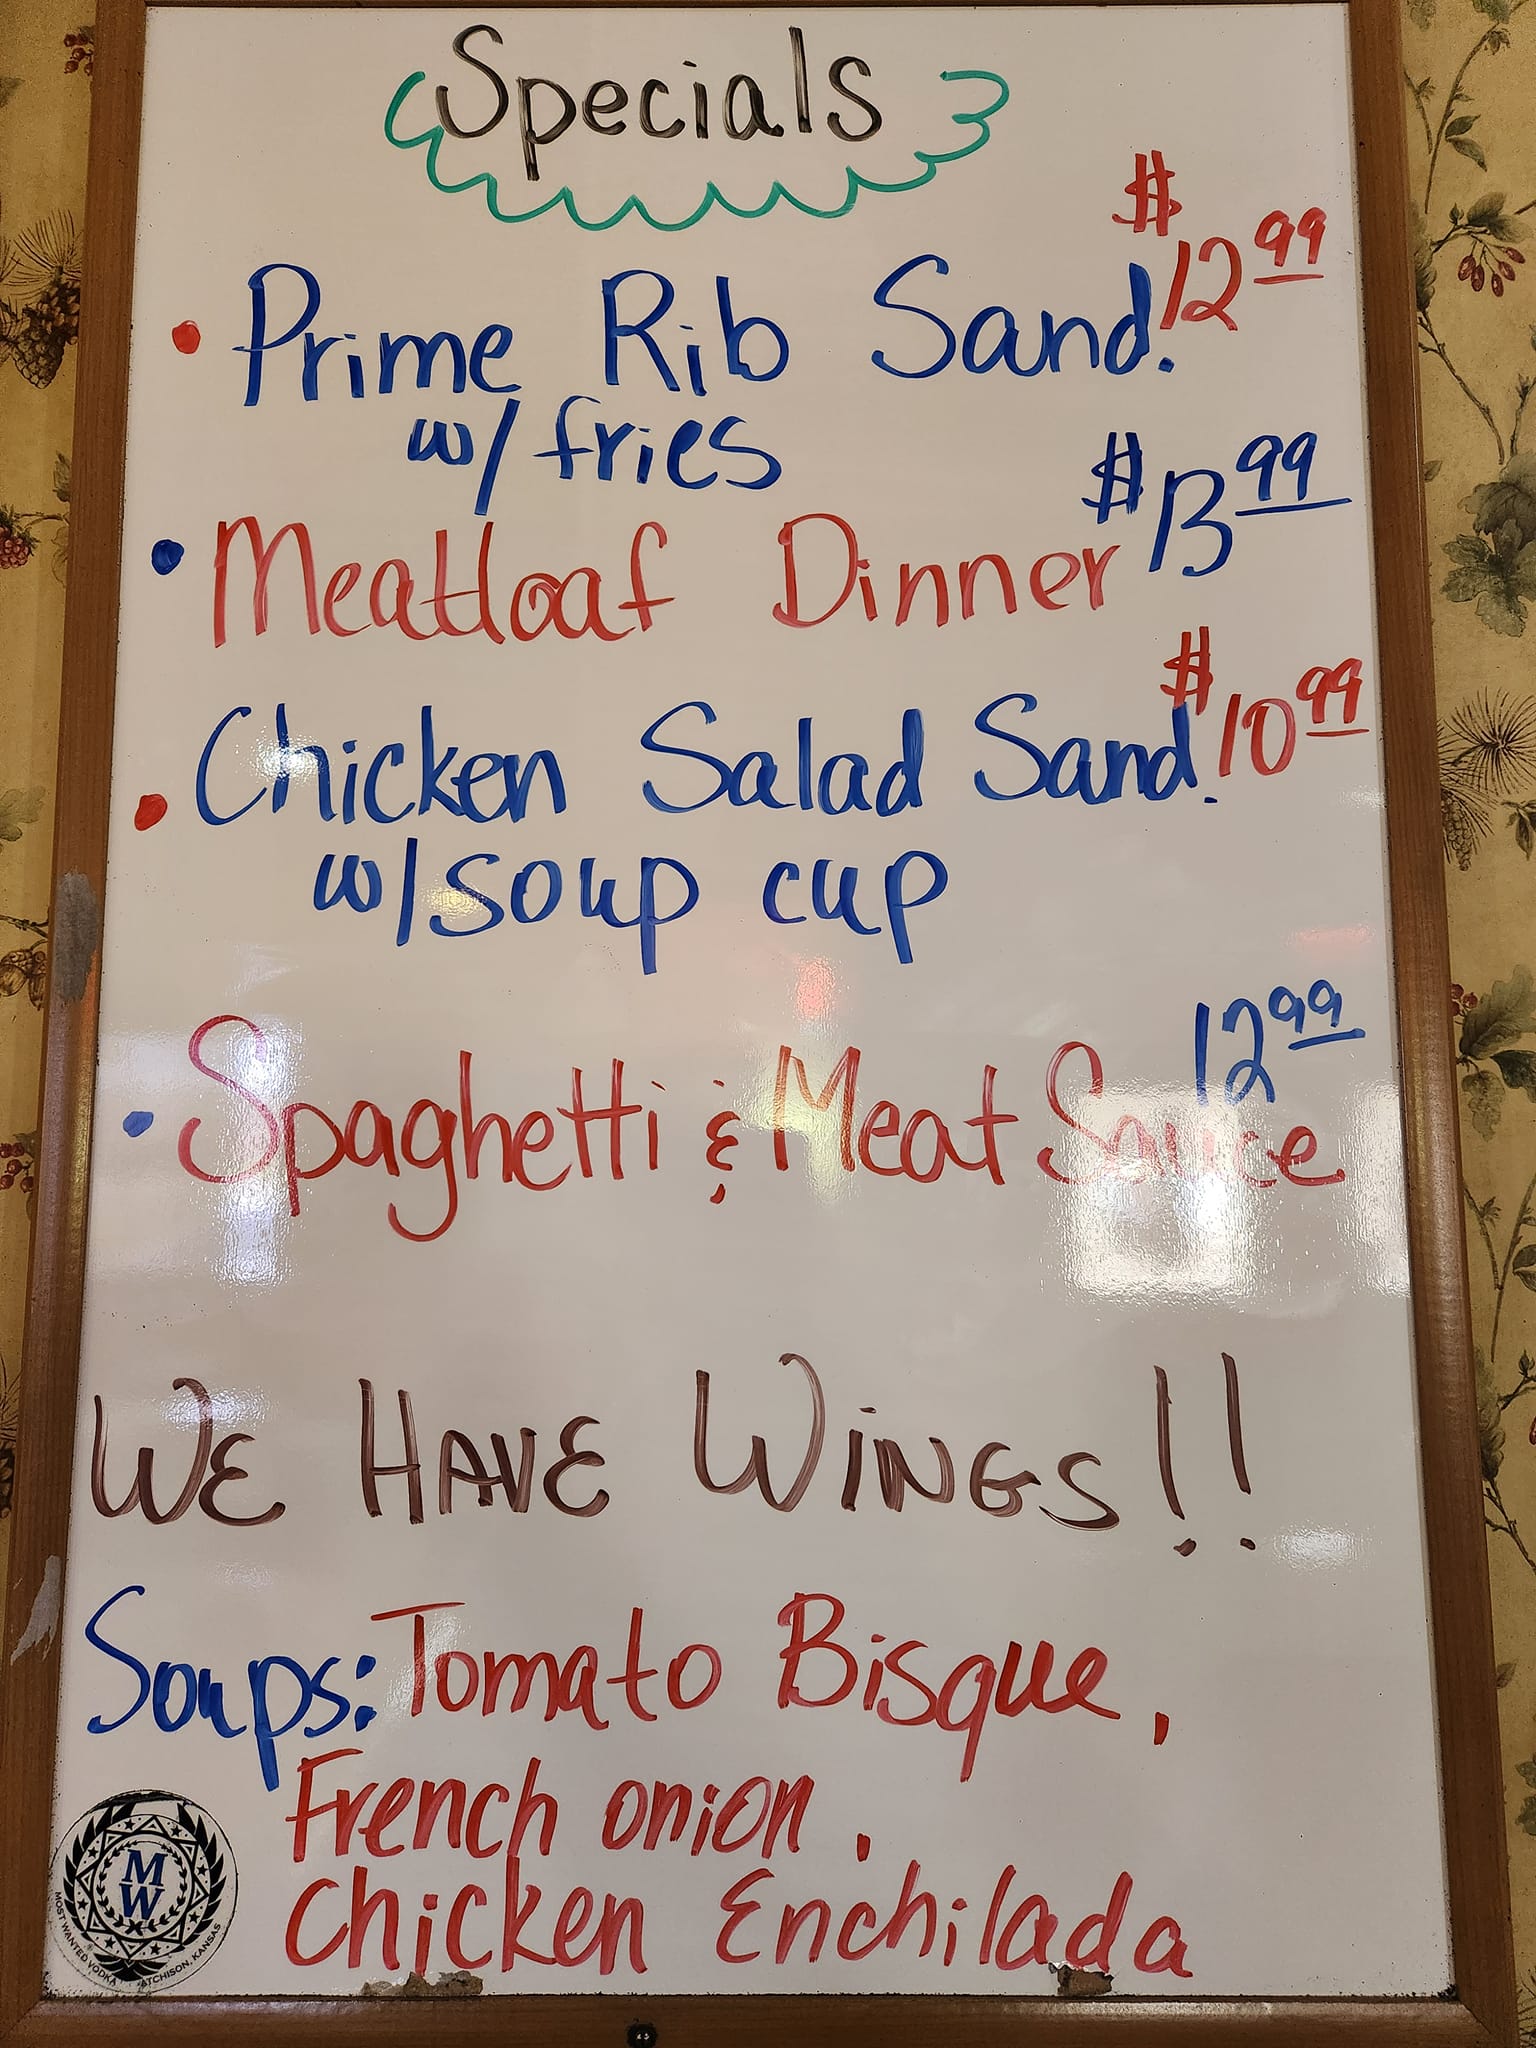 Specials
• Prime Rib Sand. $12.99
w/ fries
• Meatloaf Dinner $13.99
• Chicken Salad Sand. $10.99
w/ soup cup
• Spaghetti & Meat Sauce 12.99
WE HAVE WINGS!!
Soups: Tomato Bisque,
French onion,
Chicken Enchilada
MW
MOST WANTED VODKA ATCHISON, KANSAS